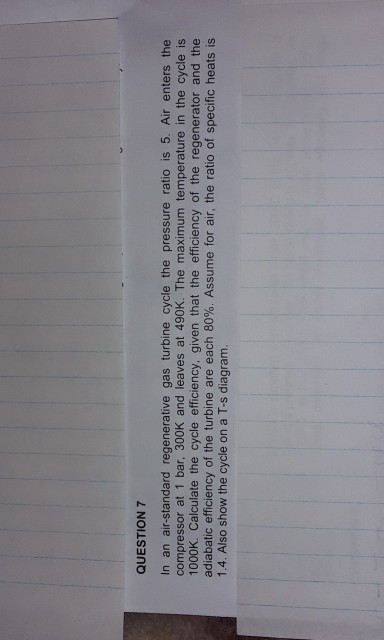 QUESTION 7
In an air-standard regenerative gas turbine cycle the pressure ratio is 5. Air enters the
compressor at 1 bar, 300K and leaves at 490K. The maximum temperature in the cycle is
1000K. Calculate the cycle efficiency, given that the efficiency of the regenerator and the
adiabatic efficiency of the turbine are each 80%. Assume for air, the ratio of specific heats is
1.4. Also show the cycle on a T-s diagram.